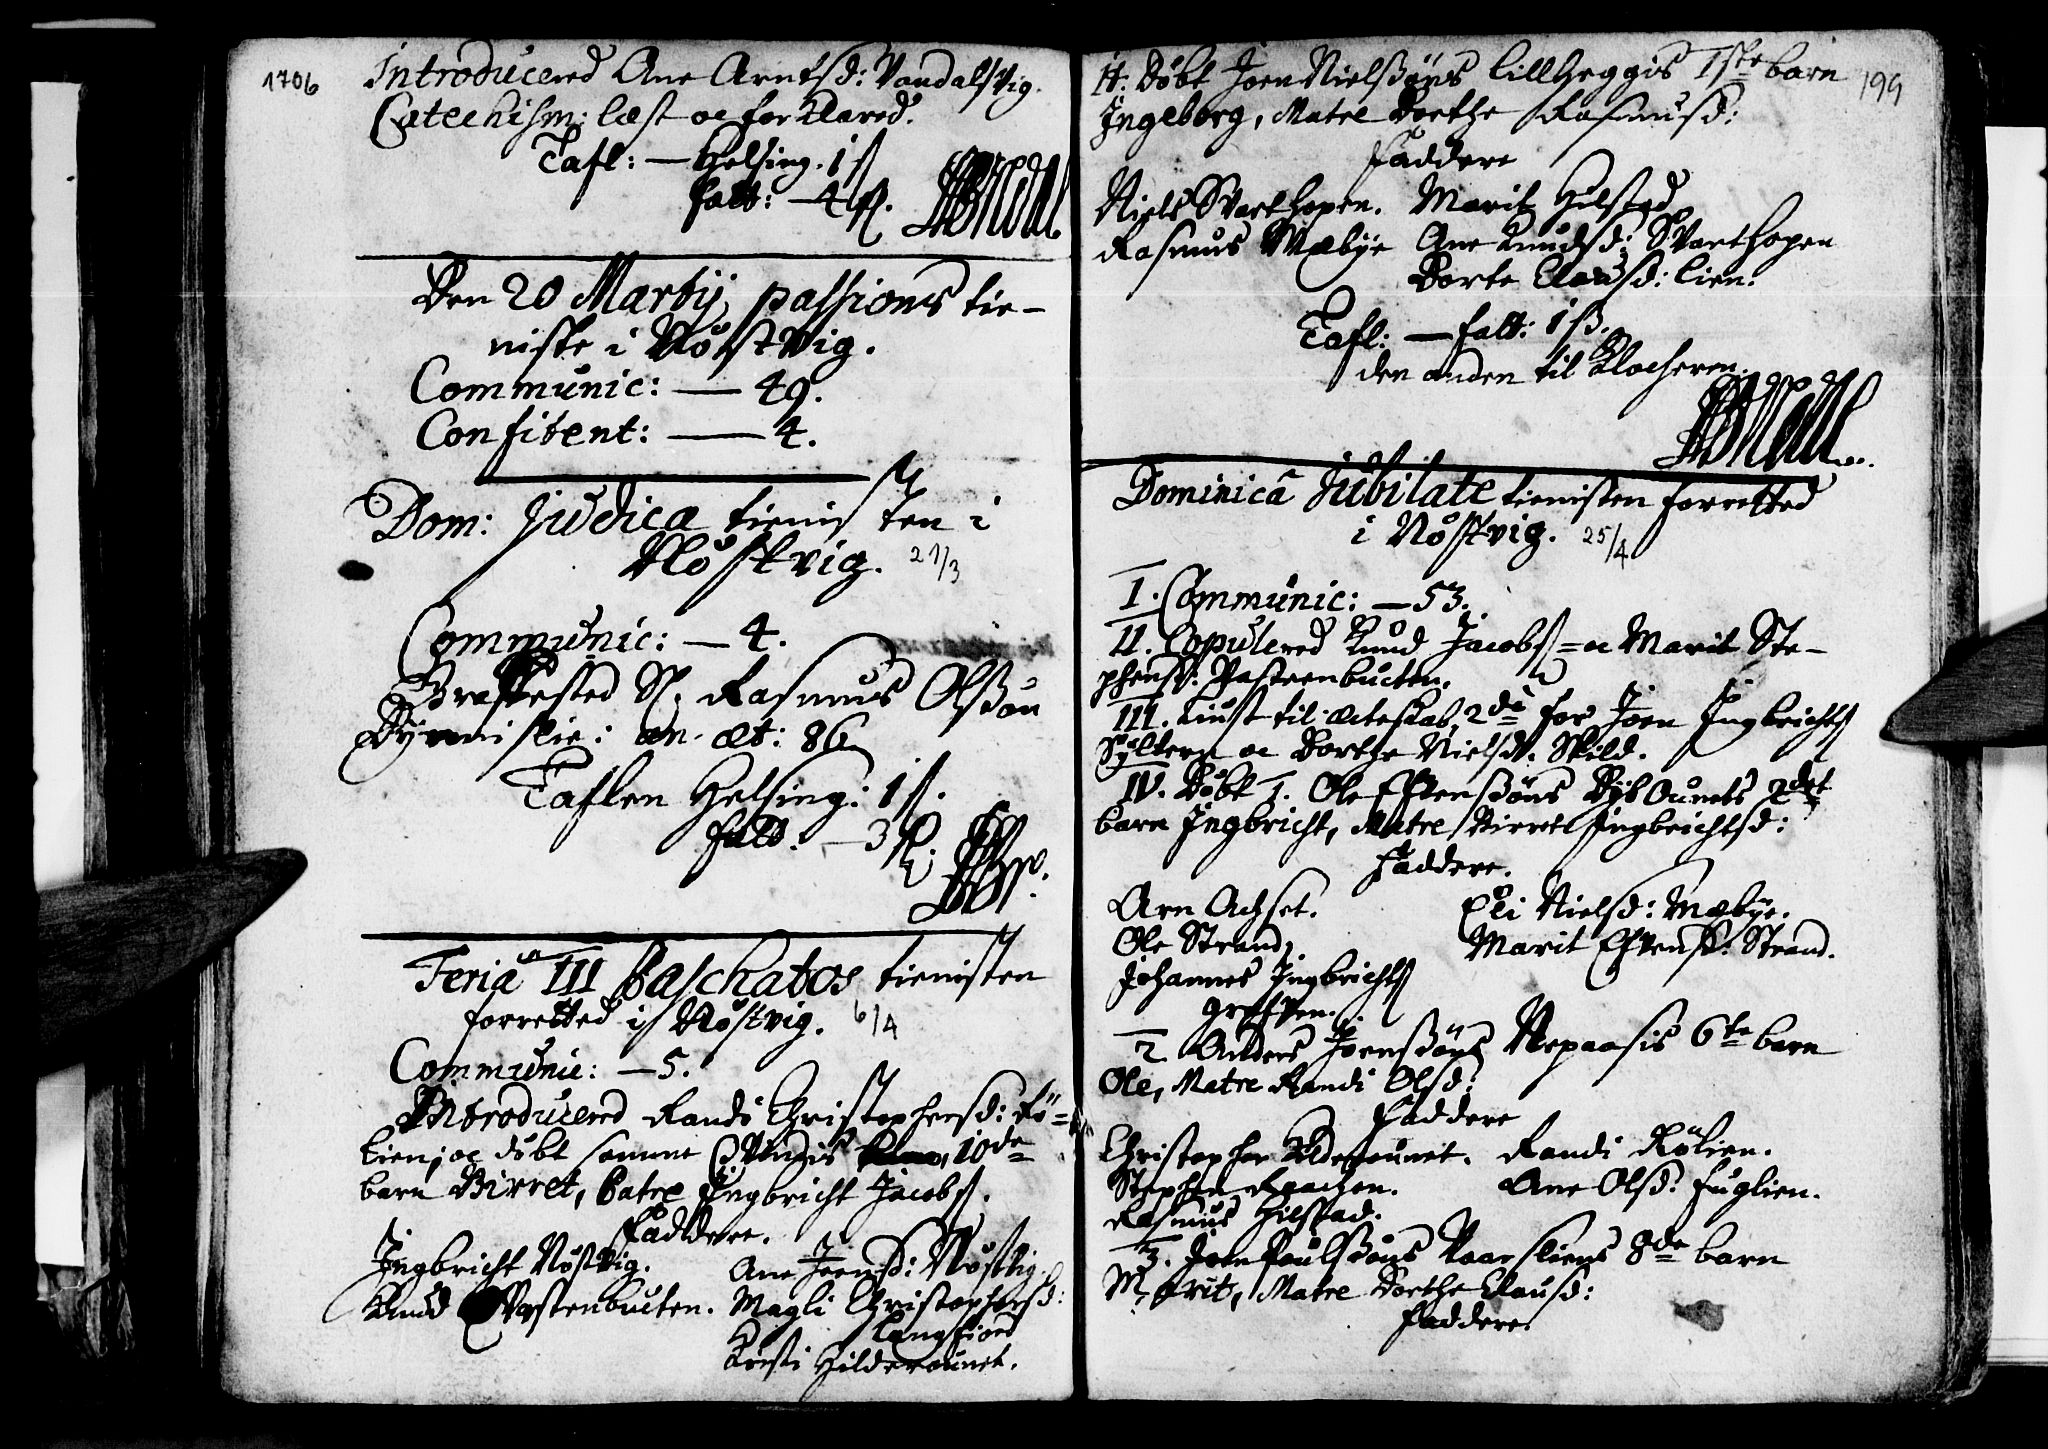 1706
Introducered Ane Arnfsd: Vandalsvig.
Catechism: læst oc forklared.
Tafl: — Helsing. 1 ß
fatt: — 4 ß.
Den 20 Martij, passions tie-
niste i Nøstvig.
Communic: — 49.
Confitent: — 4.
Dom: Judica tienisten i
Nøstvig. 21/3
Communic: — 4.
Græfested Sl. Rasmus Olßøn
an. æt: 86
Taflen Helsing: 1 ß.
fatt. — 3 ß.
Feria III Paschatos tienisten
forretted i Nøstvig. 6/4
Communic: — 5.
Introducered Randi Christophersd: Rø-
lien, oc døbt samme 10de
barn Birret, Patre Ingbricht Jacobs.
Faddere.
Ingbricht Nøstvig. Ane Joensd: Nøstvig.
Knud Vestenbucten. Magli Christophersd:
Langfiord
Kirsti Hilderøunet.
199
II. Døbt Joen Nielßøns Lillheggis 1ste barn
Ingeborg, Matre Dorthe Rasmusd:
Faddere
Niels Svarthopen. Marit Hilstad
Rasmus Mæbye Ane Knudsd: Svarthopen
Dorte Clausd: Lien.
Tafl: — fatt: 1 ß.
den anden til Klocheren.
Dominica Jubilate tienisten forretted
i Nøstvig. 25/4
I. Communic: — 53.
II. Copulered Knud Jacobs = oc Marit Ste-
phensd: Vasteenbucten.
III. Liust til ecteskab 2di for Joen Ingbrichts
Syltern oc Dorthe Nielsd: Skild.
IV. Døbt 1. Ole Efvenßøns 2det
barn Ingbricht, Matre Birret Ingbrichtsd:
Faddere.
Arn Achset. Eli Nielsd: Mæbye.
Ole Strand. Marit Efvensd: Strand.
Johannes Ingbrichts
2 Anders Joenßøns 6te barn
Ole, Matre Randi Olsd:
Faddere
Christopher Randi Rølien.
Stephen Ane Olsd: Fuglien.
Rasmus Hilstad.
3. Joen Poulßøns 8de barn
Marit, Matre Dorthe Clausd:
Faddere.